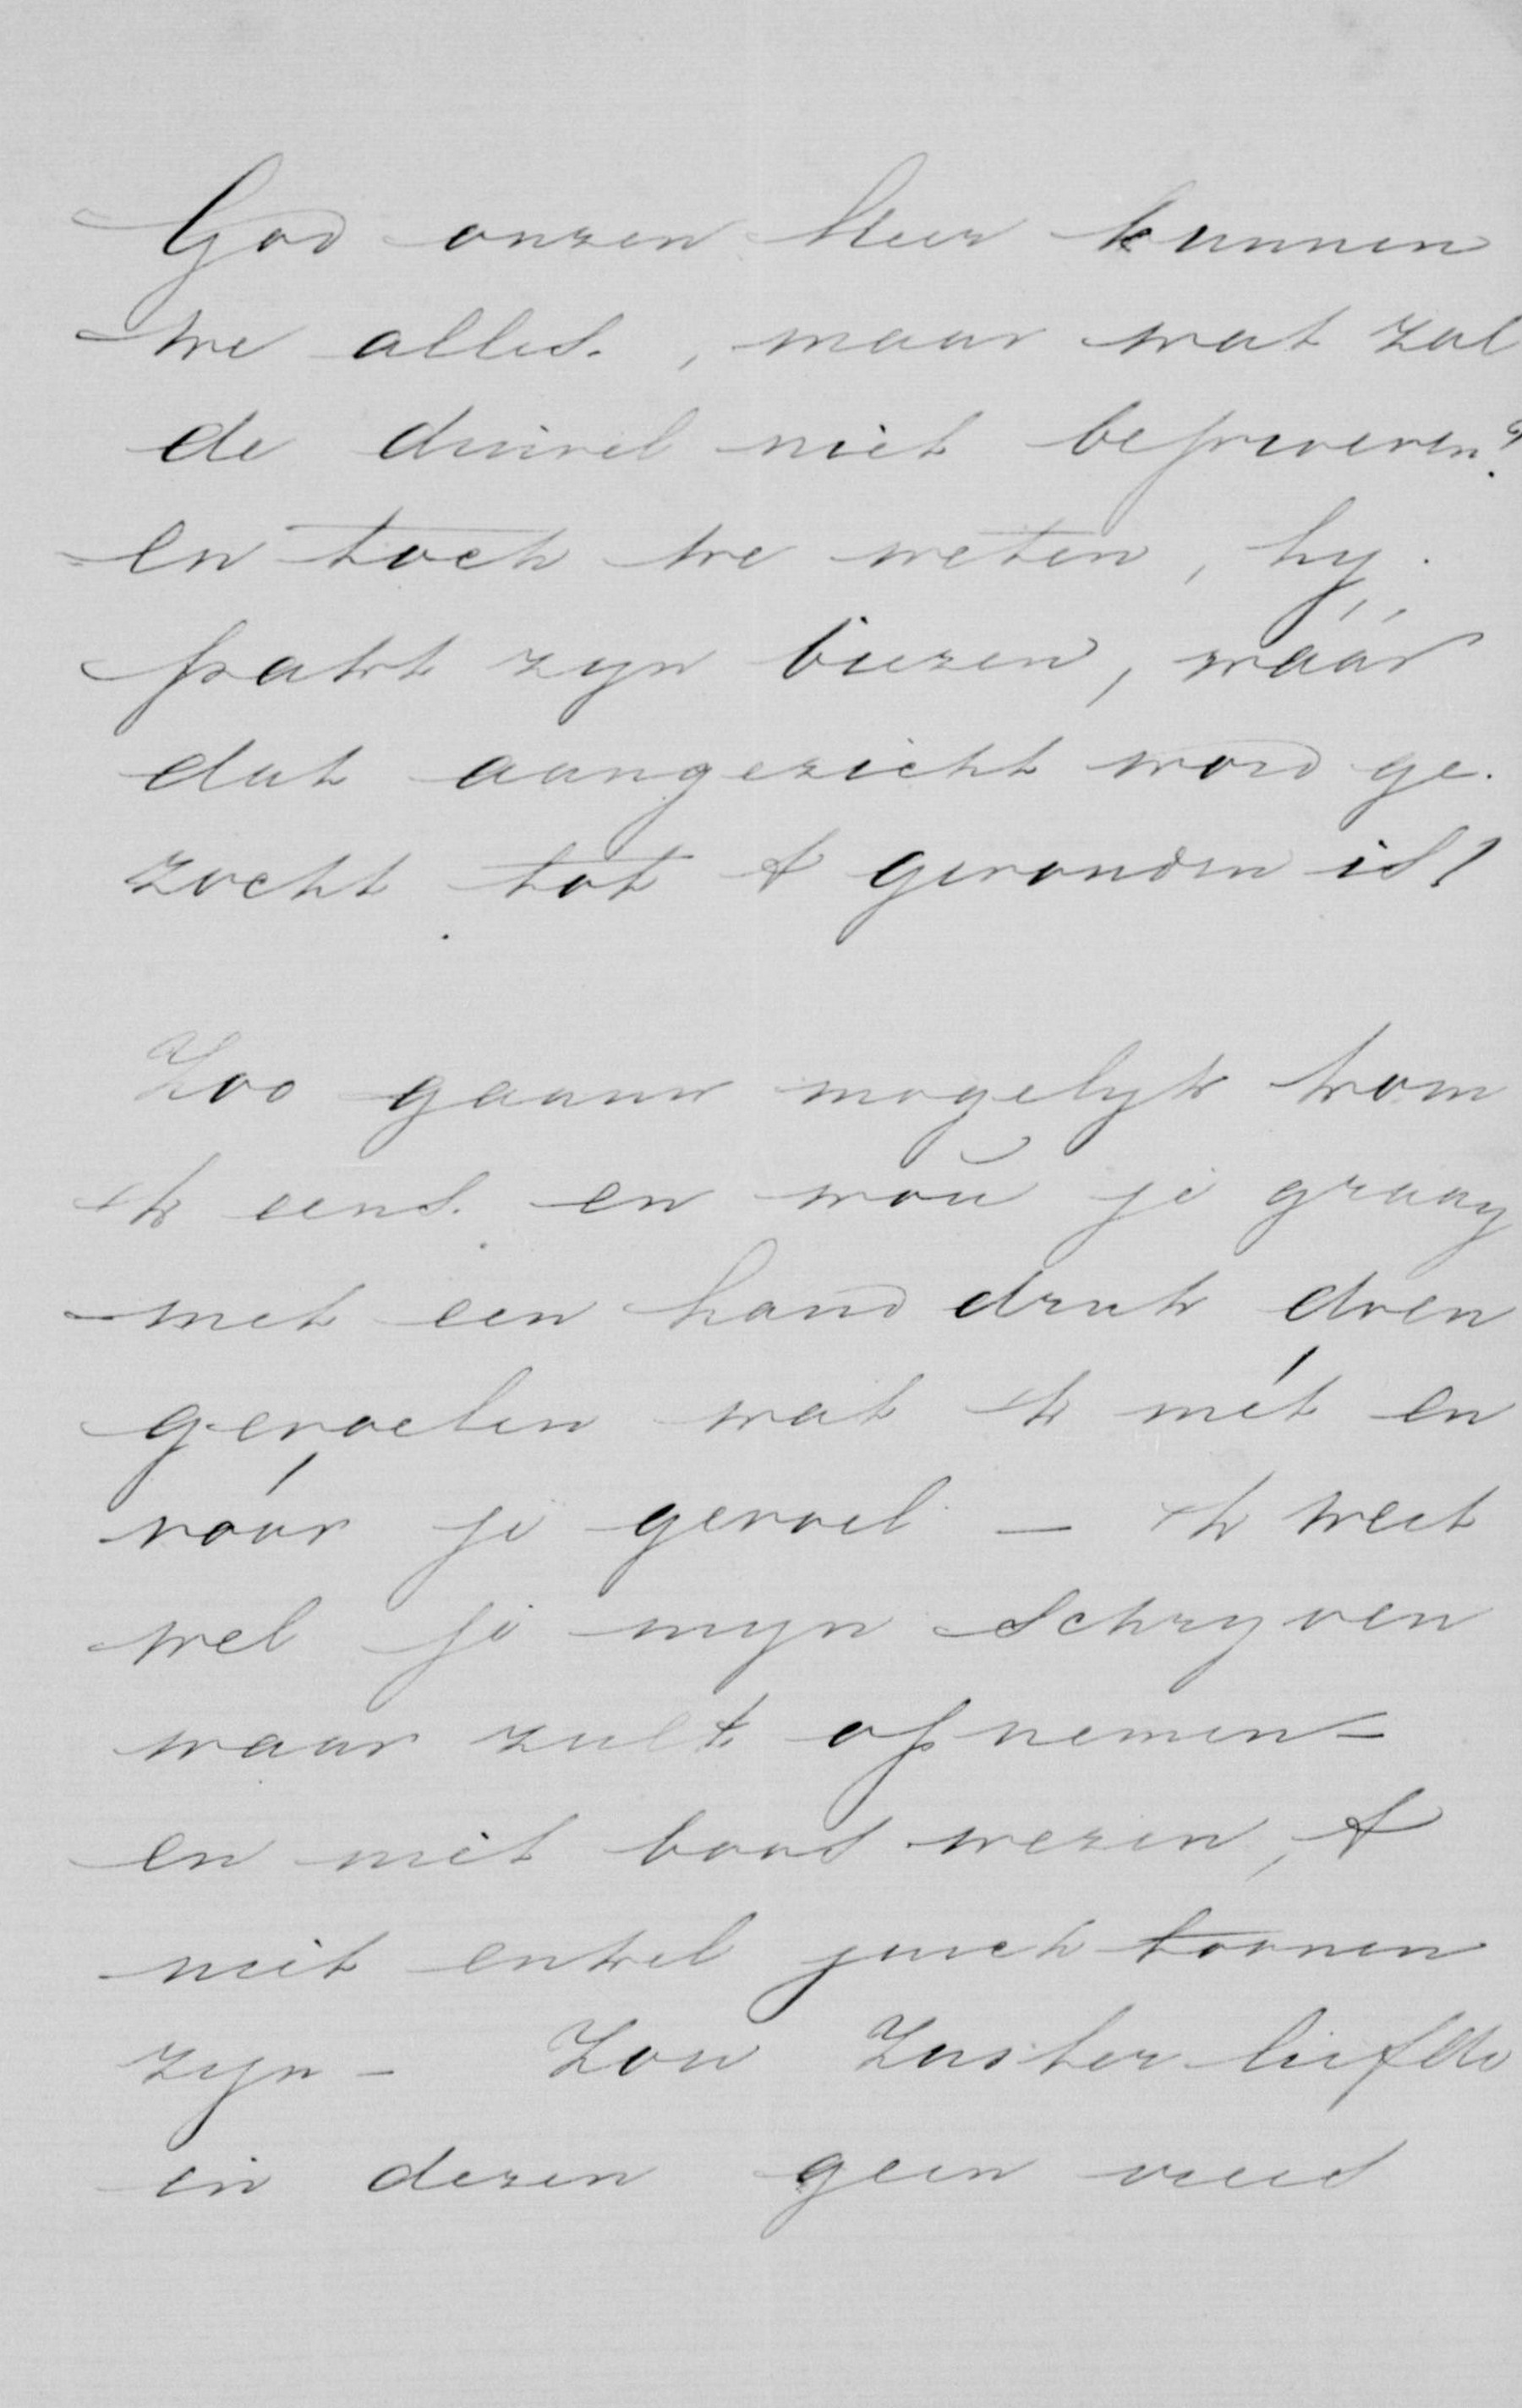 God onzen Heer kunnen
we alles, maar wat zal
de duivel niet beproeven?
en toch we weten, hy
pakt zyn biezen, wáár
dat aangezicht word ge-
zocht tot 't gevonden is!
Zoo gaauw mogelyk kom
ik eens. en wou je graag
met een hand druk doen
gevoelen wat ik mét en
vóór je gevoel – ik weet
wel je myn schryven
waar zult opnemen –
en niet boos wezen, 't
niet enkel juich toonen
zyn – Zou Zuster liefde
in dezen geen vrees